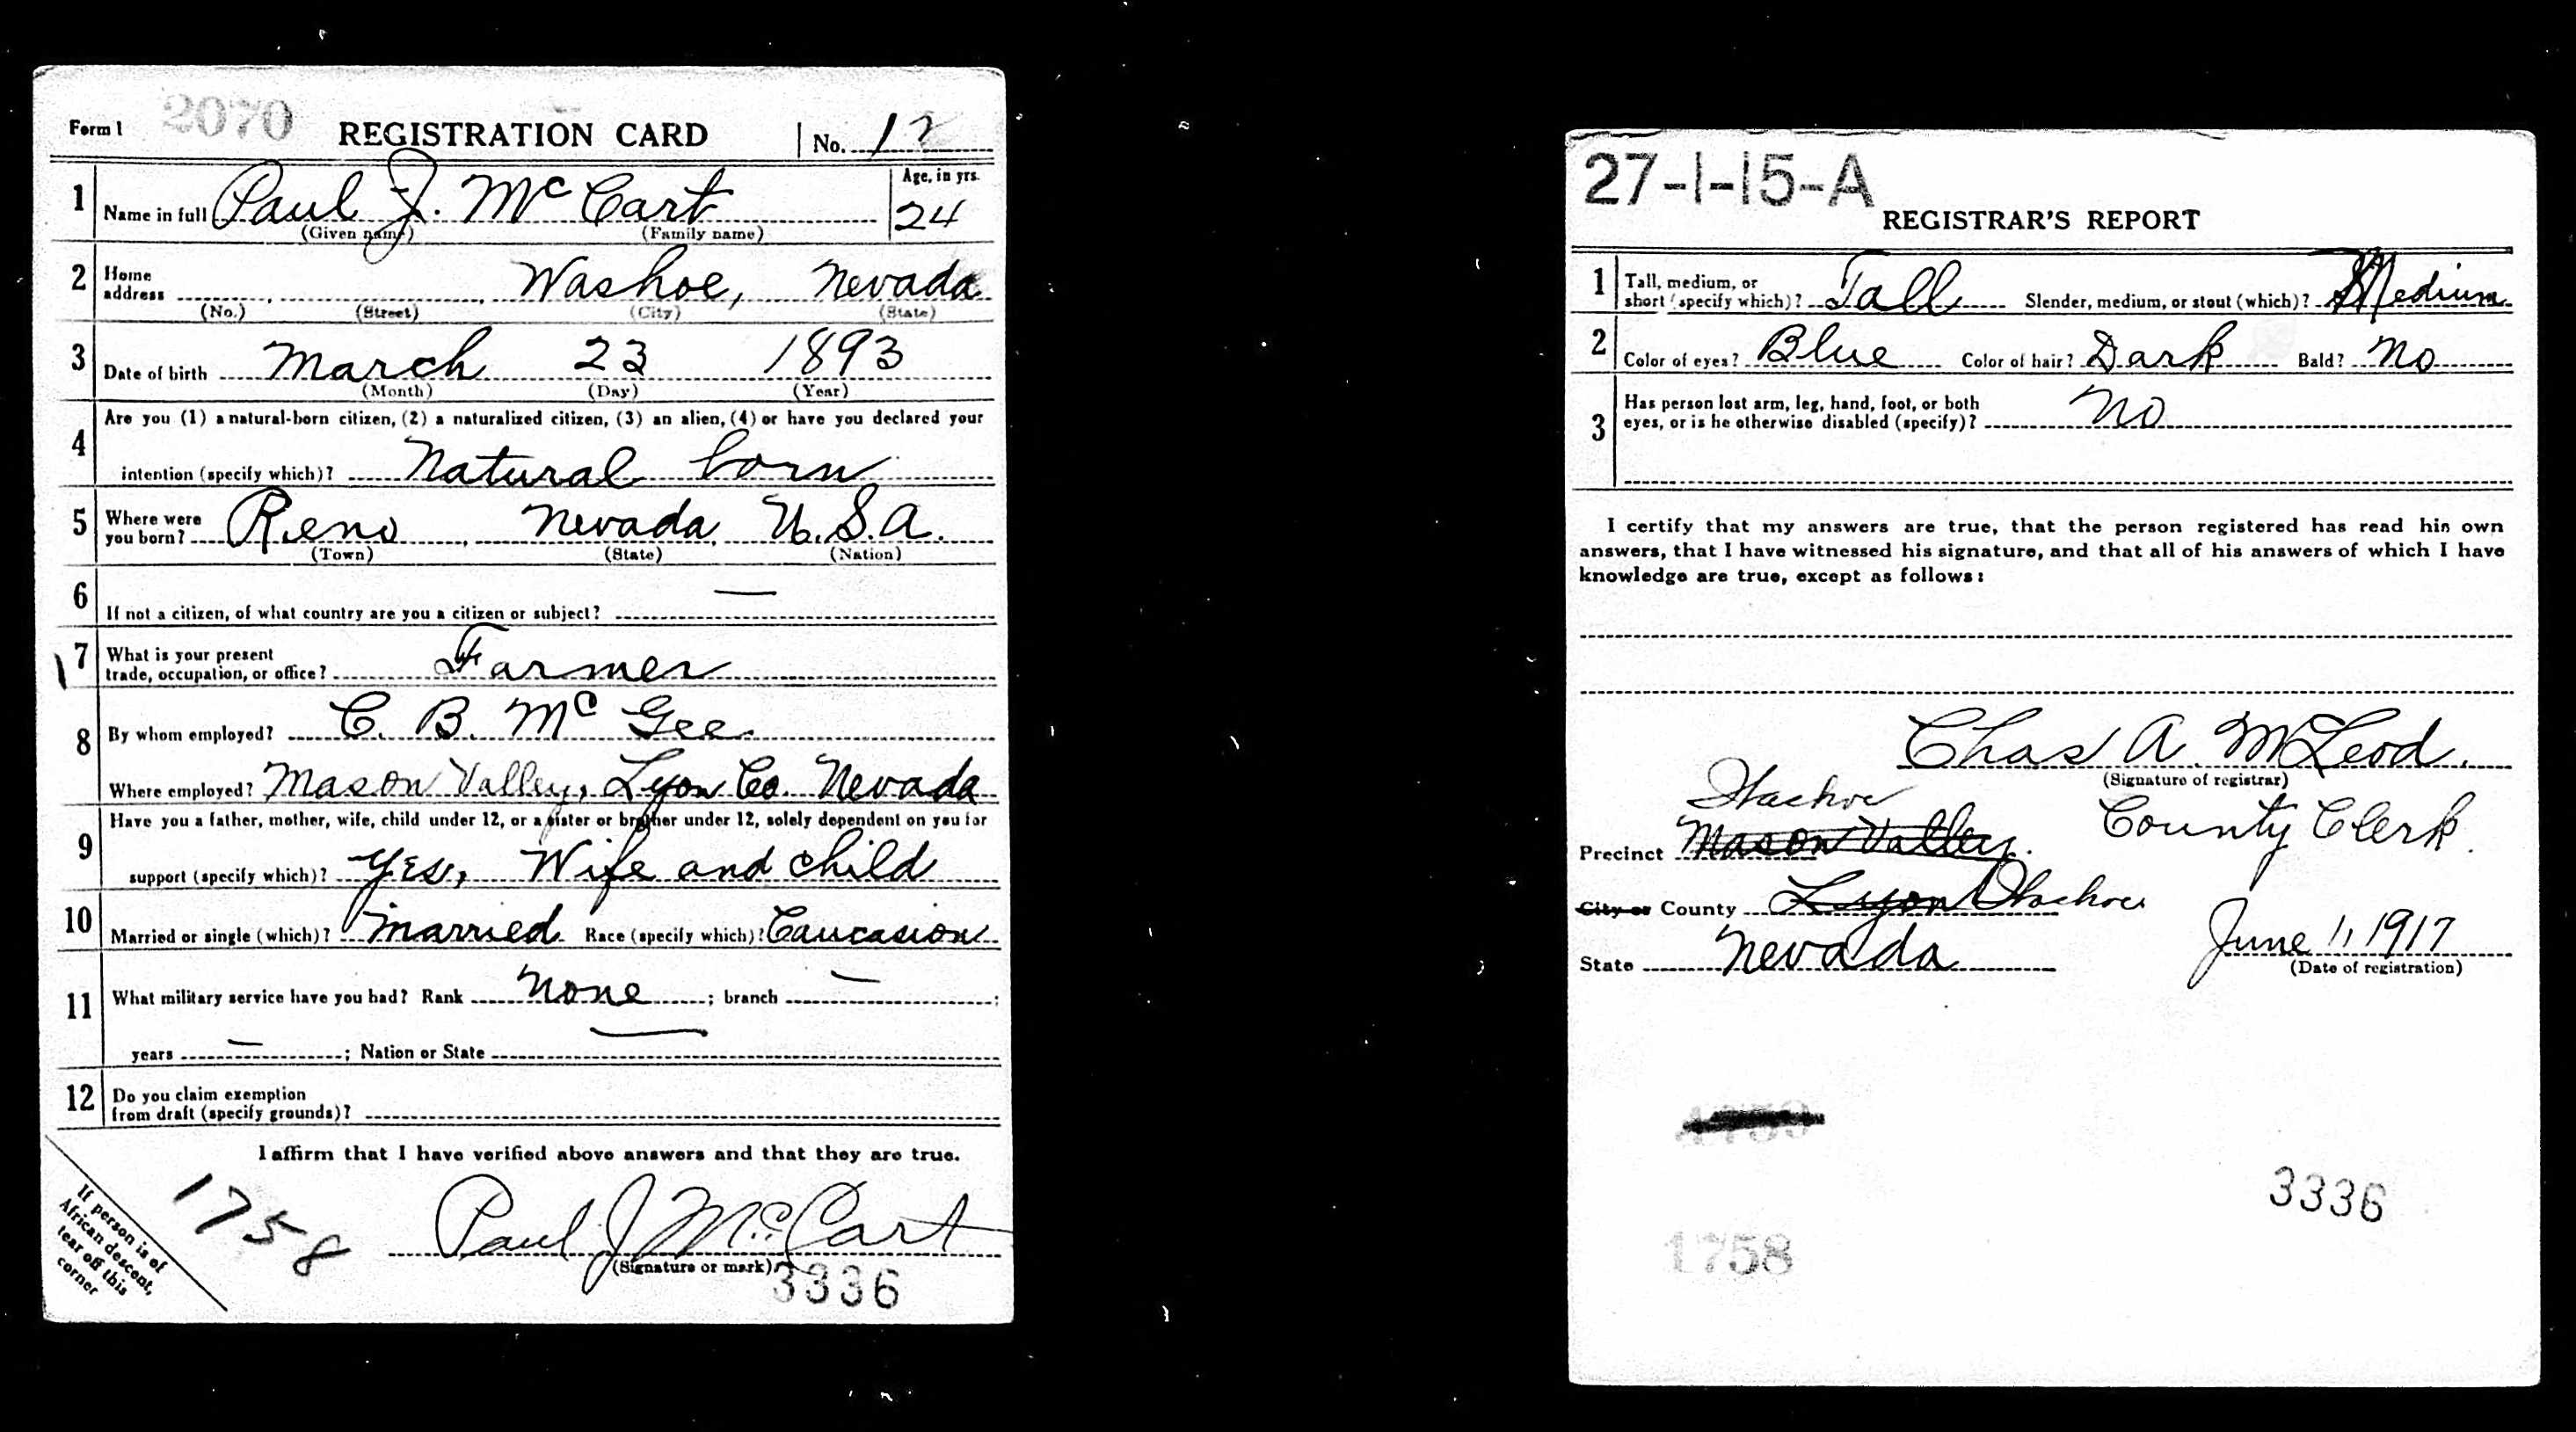 Form 1 2070 REGISTRATION CARD No. 12
1 Name in full Paul J. McCart Age, in yrs. 24
(Given name) (Family name)
2 Home address Washoe, Nevada
(No.) (Street) (City) (State)
3 Date of birth March 23 1893
(Month) (Day) (Year)
4 Are you (1) a natural-born citizen, (2) a naturalized citizen, (3) an alien, (4) or have you declared your
intention (specify which)? Natural born
5 Where were you born? Reno, Nevada, U.S.A.
(Town) (State) (Nation)
6 If not a citizen, of what country are you a citizen or subject? —
7 What is your present
trade, occupation, or office? Farmer
8 By whom employed? C. B. McGee
Where employed? Mason Valley, Lyon Co. Nevada
9 Have you a father, mother, wife, child under 12, or a sister or brother under 12, solely dependent on you for
support (specify which)? Yes, Wife and child
10 Married or single (which)? Married Race (specify which)? Caucasion
11 What military service have you had? Rank None ; branch — ;
years — ; Nation or State —
12 Do you claim exemption
from draft (specify grounds)?
I affirm that I have verified above answers and that they are true.
If person is of
African descent,
tear off this
corner
1758
Paul J McCart
(Signature or mark)
3336
27-1-15-A
REGISTRAR'S REPORT
1 Tall, medium, or
short (specify which)? Tall Slender, medium, or stout (which)? Medium
2 Color of eyes? Blue Color of hair? Dark Bald? No
3 Has person lost arm, leg, hand, foot, or both
eyes, or is he otherwise disabled (specify)? No
I certify that my answers are true, that the person registered has read his own
answers, that I have witnessed his signature, and that all of his answers of which I have
knowledge are true, except as follows:
Chas A. McLeod.
(Signature of registrar)
Washoe
Precinct Mason Valley. County Clerk.
City or County Lyon Washoe
State Nevada June 1, 1917
(Date of registration)
1759
3336
1758